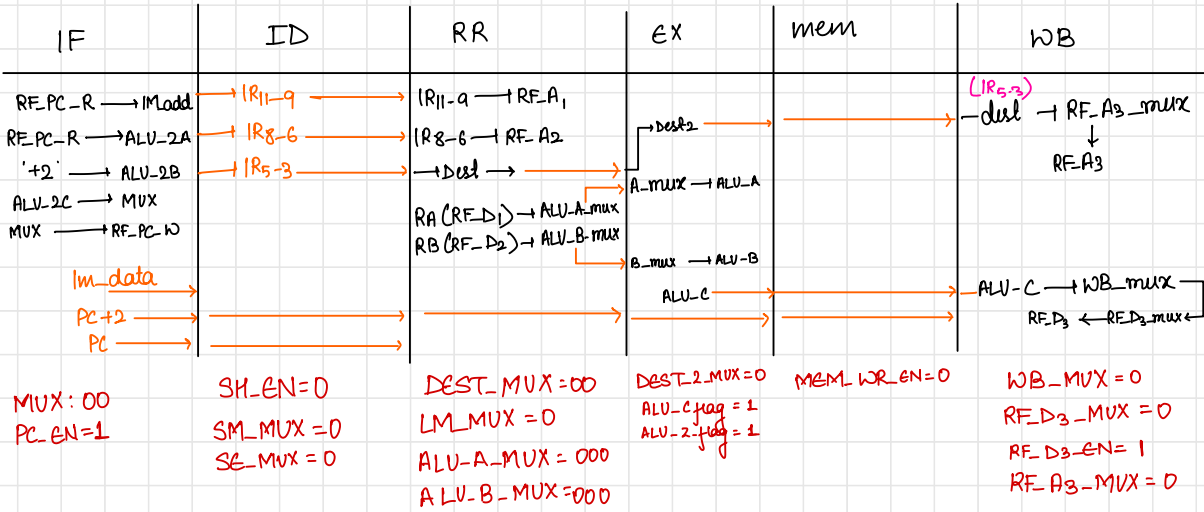 IF
RF_PC_R → IMadd
RF_PC_R → ALU_2A
'+2' → ALU_2B
ALU_2C → MUX
MUX → RF_PC_W
Im_data
PC+2
PC
MUX: 00
PC_EN=1
ID
IR11-9
IR8-6
IR5-3
SH_EN=0
SM_MUX=0
SE_MUX=0
RR
IR11-9 → RF_A1
IR8-6 → RF_A2
→ Dest →
RA (RF_D1) → ALU_A_mux
RB (RF_D2) → ALU_B-mux
DEST_MUX=00
LM_MUX=0
ALU-A_MUX=000
ALU-B_MUX=000
EX
Dest2
A_mux → ALU_A
B_mux → ALU-B
ALU_C
DEST_2_MUX=0
ALU_C flag = 1
ALU-2-flag = 1
mem
MEM_WR_EN=0
WB
(IR5-3)
dest → RF_A3_mux
↓
RF_A3
ALU-C → WB_mux
RF_D3 ← RF_D3_mux
WB_MUX=0
RF_D3_MUX=0
RF_D3_EN=1
RF_A3_MUX=0